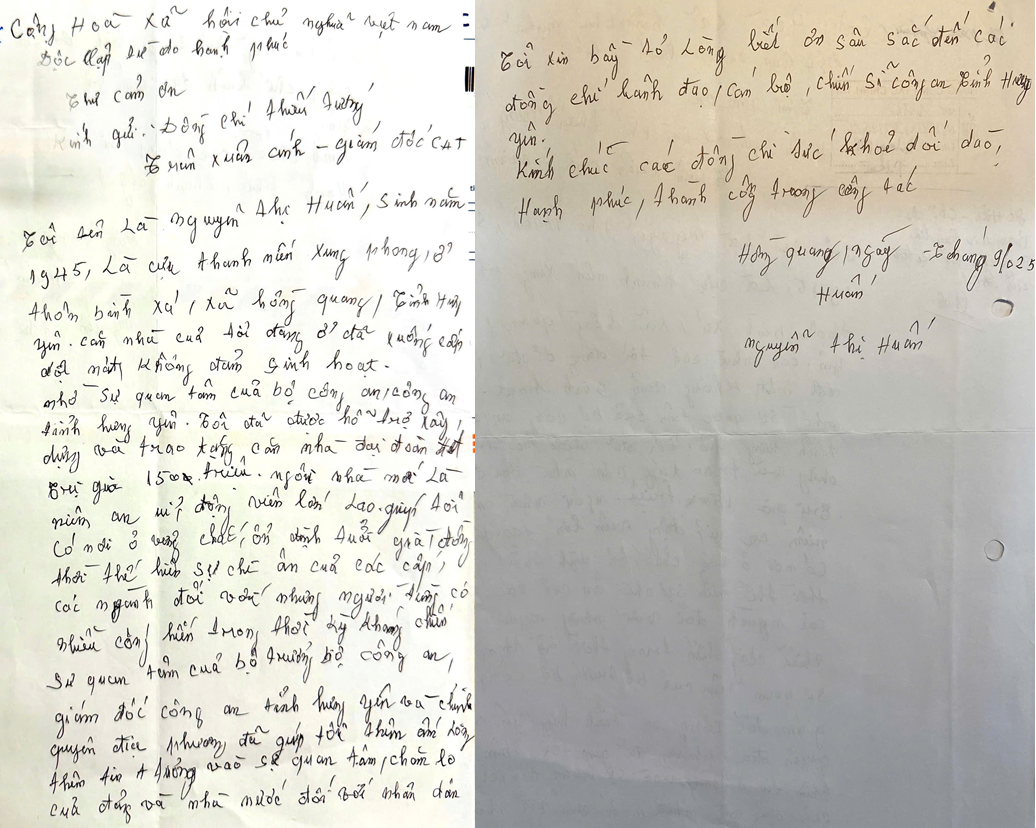 Cộng Hoà Xã hội chủ nghĩa việt nam
Độc lập tự do hạnh phúc
Thư cảm ơn
Kính gửi: Đồng chí thiếu tướng
Trần Xuân ánh - giám đốc CAT
Tôi tên Là nguyễn thị Huấn, Sinh năm
1945, Là cựu thanh niên xung phong, ở
thôn bình xá, xã hồng quang, Tỉnh Hưng
yên. căn nhà của tôi đang ở đã xuống cấp
dột nát, không đảm sinh hoạt.
nhờ sự quan tâm của bộ công an, công an
tỉnh hưng yên. Tôi đã được hỗ trợ xây,
dựng và trao tặng căn nhà đại đoàn kết
trị giá 150 triệu. ngôi nhà mới Là
niềm an ủi, động viên lớn lao. giúp tôi
có nơi ở vững chắc, ổn định tuổi già, đồng
thời thể hiện sự chi ân của các cấp,
các ngành đối với những người từng có
nhiều cống hiến trong thời kỳ kháng chiến
sự quan tâm của bộ trưởng bộ công an,
giám đốc công an tỉnh hưng yên và chính
quyền địa phương đã giúp tôi thêm ấm lòng
thêm tin tưởng vào sự quan tâm, chăm lo
của đảng và nhà nước đối với nhân dân
Tôi xin bầy tỏ Lòng biết ơn sâu sắc đến các
đồng chí lãnh đạo, cán bộ, chiến sĩ công an Tỉnh Hưng
yên.
Kính chúc các đồng chí sức khoẻ dồi dào,
Hạnh phúc, thành công trong công tác
Hồng quang, ngày - Tháng 9/025
Huấn
nguyễn thị Huấn